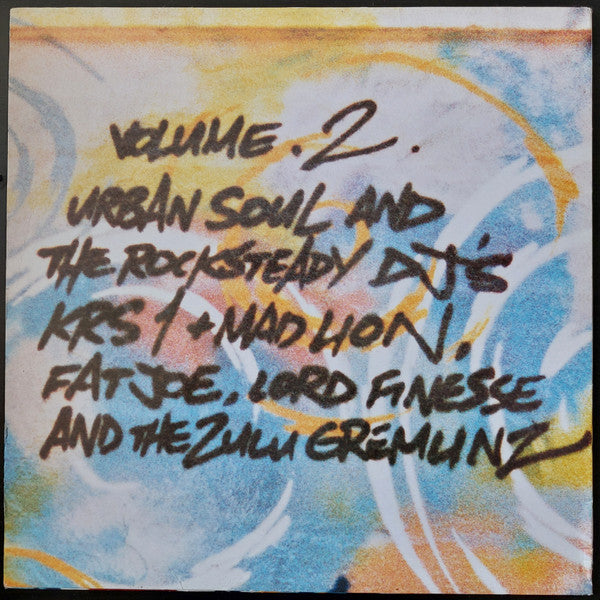 VOLUME . 2 .
URBAN SOUL AND
THE ROCKSTEADY DJ's
KRS 1 + MAD LION.
FAT JOE. LORD FINESSE
AND THE ZULU GREMLINZ